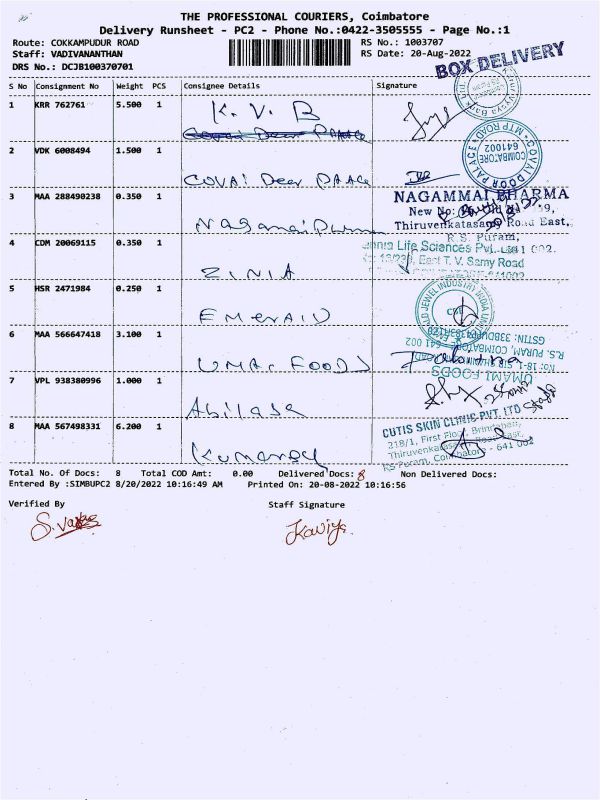 THE PROFESSIONAL COURIERS, Coimbatore
Delivery Runsheet - PC2 - Phone No.:0422-3505555 - Page No.:1
Route: COKKAMPUDUR ROAD
RS No.: 1003707
Staff: VADIVANANTHAN
RS Date: 20-Aug-2022
DRS No.: DCJB100370701
BOX DELIVERY
S No Consignment No Weight PCS Consignee Details Signature
1 KRR 762761 5.500 1 K. V. B
2 VDK 6008494 1.500 1 COVAI Deer PAAce
COVAI DOOR PALACE
MTP ROAD
COIMBATORE
641002
3 MAA 288490238 0.350 1 Nagamai Purma
NAGAMMAI PHARMA
New No:
Thiruvenkatasamy Road East,
R.S. Puram,
4 CDM 20069115 0.350 1 ZINIA
Life Sciences Pvt. Ltd.
East T. V. Samy Road
5 HSR 2471984 0.250 1 EMERALD
EMERALD JEWEL INDUSTRY INDIA LIMITED
6 MAA 566647418 3.100 1 UMAI FOODS
UMAMI FOODS
R.S. PURAM, COIMBATORE, 641 002
7 VPL 938380996 1.000 1 Abilasa
8 MAA 567498331 6.200 1 Kumaran
CUTIS SKIN CLINIC PVT. LTD
218/1, First Floor, Brindhavan,
Thiruvenkatasamy Road East,
RS Puram, Coimbatore - 641 002
Total No. Of Docs: 8 Total COD Amt: 0.00 Delivered Docs: 8 Non Delivered Docs:
Entered By :SIMBUPC2 8/20/2022 10:16:49 AM Printed On: 20-08-2022 10:16:56
Verified By Staff Signature
Kaviya